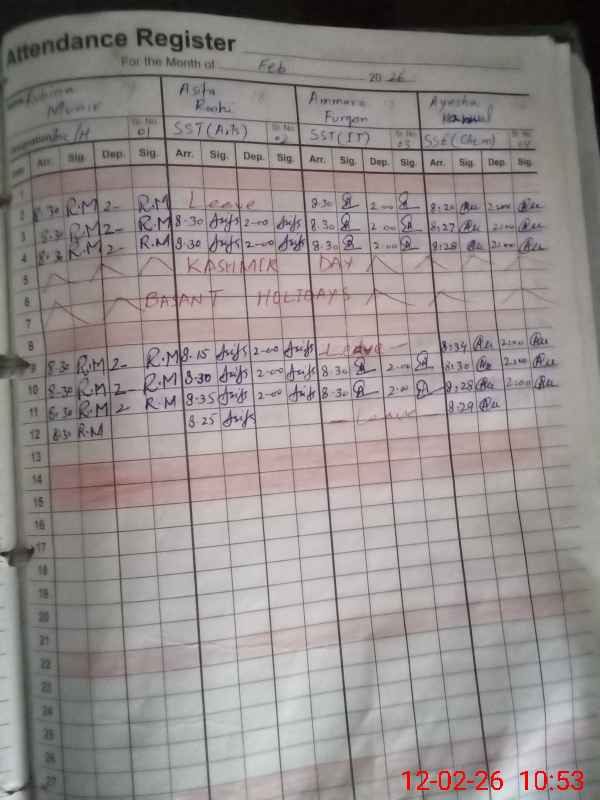 Attendance Register
For the Month of Feb 2026
Rubina Munir Asifa Roohi Ammara Furqan Ayesha
I/C/H Sr. No 01 SST (Arts) Sr. No 02 SST (IT) Sr. No 03 SSE (Chem) Sr. No 04
Arr. Sig. Dep. Sig. Arr. Sig. Dep. Sig. Arr. Sig. Dep. Sig. Arr. Sig. Dep. Sig.
1
2 8.30 R.M 2- R.M Leave 8.30 2.00 8:20 2:00
3 8.30 R.M 2- R.M 8.30 2-00 8.30 2.00 8:27 2:00
4 8.30 R.M 2- R.M 8.30 2-00 8.30 2.00 8:28 2:00
5 KASHMIR DAY
6
7 BASANT HOLIDAYS
8
9 8.30 R.M 2- R.M 8.15 2-00 Leave 8:34 2:00
10 8.30 R.M 2- R.M 8.30 2-00 8.30 2.00 8:30 2:00
11 8.30 R.M 2- R.M 8.35 2-00 8.30 2.00 8:28 2:00
12 8.30 R.M 8.25 Leave 8:29
13
14
15
16
17
18
19
20
21
22
23
24
25
26
27
12-02-26 10:53